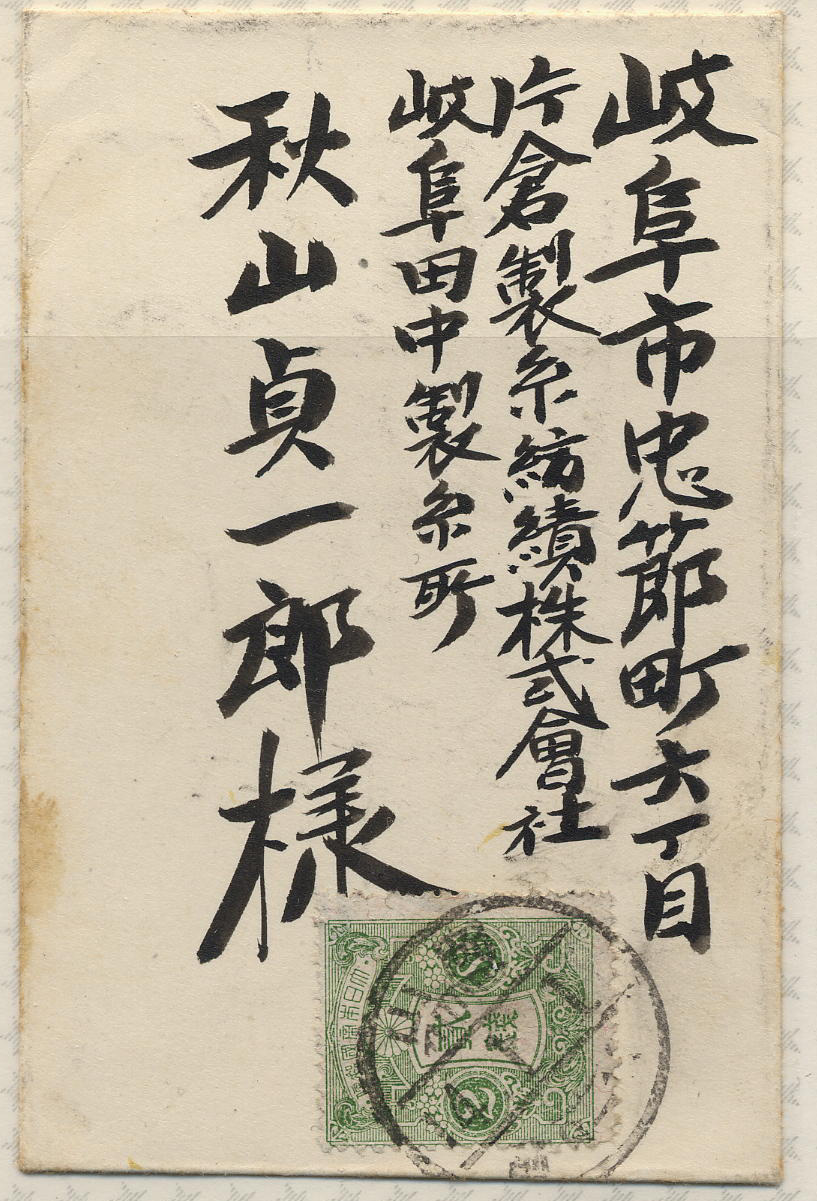 岐阜市忠節町六丁目
片倉製糸紡績株式會社
岐阜田中製糸所
秋山貞一郎様
大日本帝國郵便
貳錢
2
2